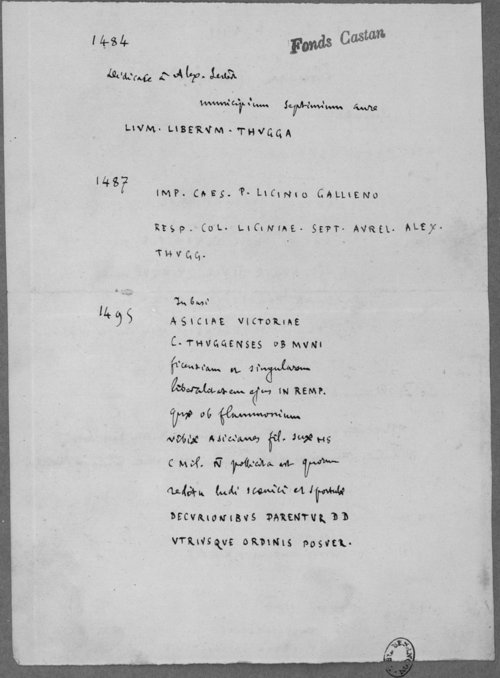 Fonds Castan
1484
Dédicace à Alex. Sévère
municipium Septimium aure
LIVM. LIBERVM. THVGGA
1487
IMP. CAES. P. LICINIO GALLIENO
RESP. COL. LICINIAE. SEPT. AVREL. ALEX.
THVGG.
1495
In basi
ASICIAE VICTORIAE
C. THVGGENSES OB MVNI
ficentiam et singularem
liberalitatem ejus IN REMP.
quæ ob flammonium
vibiæ Asicianes fil. suæ HS
C Mil. N pollicita est quorum
reditu ludi scænici et sportulæ
DECVRIONIBVS DARENTVR D D
VTRIVSQVE ORDINIS POSVER.